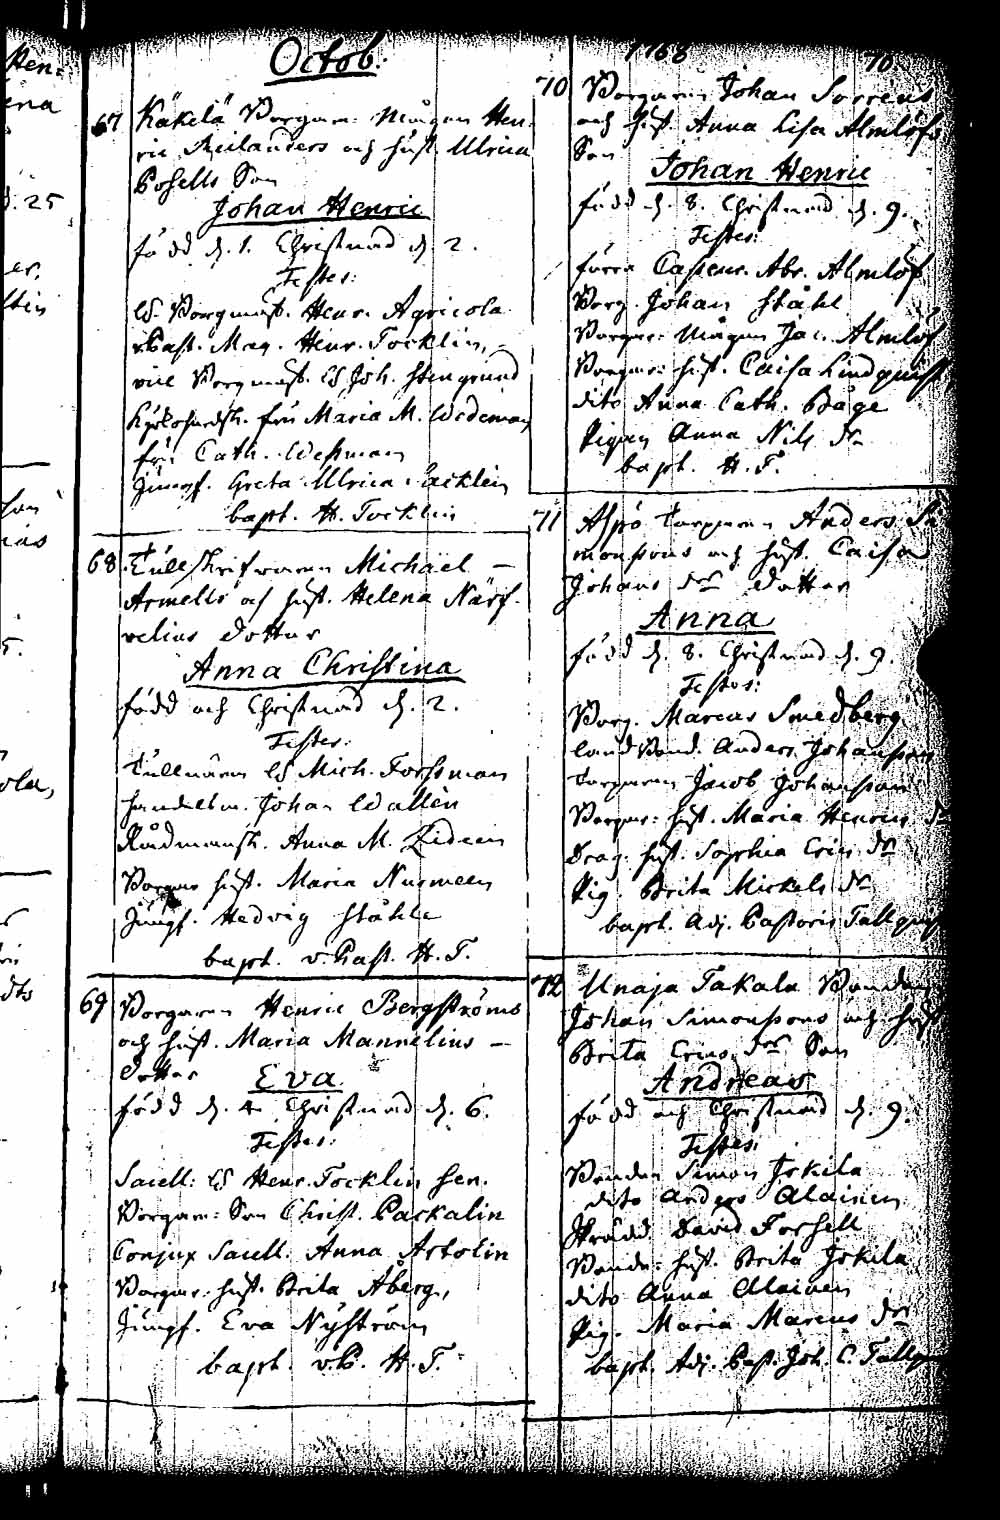 Octob:
67 Käkelä Borgaren Mågen Hen-
ric Reilanders och hust. Ulrica
Posells Son
Johan Henric
född d. 1. Christnad d. 2.
Testes:
H. Borgmäst. Henr. Agricola
vPast. Mag. Henr. Tocklin,
vice Borgmäst. H Joh. Stengrund
fru Maria M. Wedeman
fru Cath. Wessman
Jungf. Greta Ulrica Täcklin
bapt. H. Tocklin
68 Tullskrifvaren Michäel —
Armells och hust. Helena Närf-
velius dotter
Anna Christina
född och Christnad d. 2.
Testes:
Tullnären H Mich. Forssman
Handelsm. Johan Wallen
Rådmansk. Anna M. Zidein
Borgar hust. Maria Nurmeen
Jungf. Hedvig Ståhle
bapt. v. Past. H. T.
69 Borgaren Henric Bergströms
och hust. Maria Mannelius —
dotter Eva
född d. 4 Christnad d. 6.
Testes:
Sacell: H Henr. Tocklin Sen.
Borgare: Son Christ. Packalin
Conjux Sacell. Anna Artolin
Borgar: hust. Brita Åberg,
Jungf. Eva Nyström
bapt. vP. H. T.
1768
70
70 Borgaren Johan Sorrens
och hust. Anna Lisa Almlöfs
Son
Johan Henric
född d. 8. Christnad d. 9.
Testes:
förra Casseur. Abr. Almlöf
Borg. Johan Ståhl
Borgar: Mågen Jac. Almlöf
Borgar: hust. Caisa Lindquist
dito Anna Cath. Båge
Pigan Anna Nils dr
bapt. H. T.
71 Aspö Torparen Anders Si-
monssons och hust. Caisa
Johans dr dotter
Anna
född d. 8. Christnad d. 9.
Testes:
Borg. Marcus Smedberg
Land Bond. Anders Johansson
Torparen Jacob Johansson
Borgar: hust. Maria Henrics dr
Drag. hust. Sophia Erics dr
Pig. Brita Mickels dr
bapt. Adj. Pastoris Tallquist
72 Unaja Takala Bonden
Johan Simonssons och hust
Brita Erics dr Son
Andreas
född och Christnad d. 9.
Testes:
Bonden Simon Jskila
dito Anders Alainen
David Forssell
Bonde: hust. Brita Jskila
dito Anna Alainen
Pig. Maria Marcus dr
bapt. Adj. Past. Joh. C. Tallquist